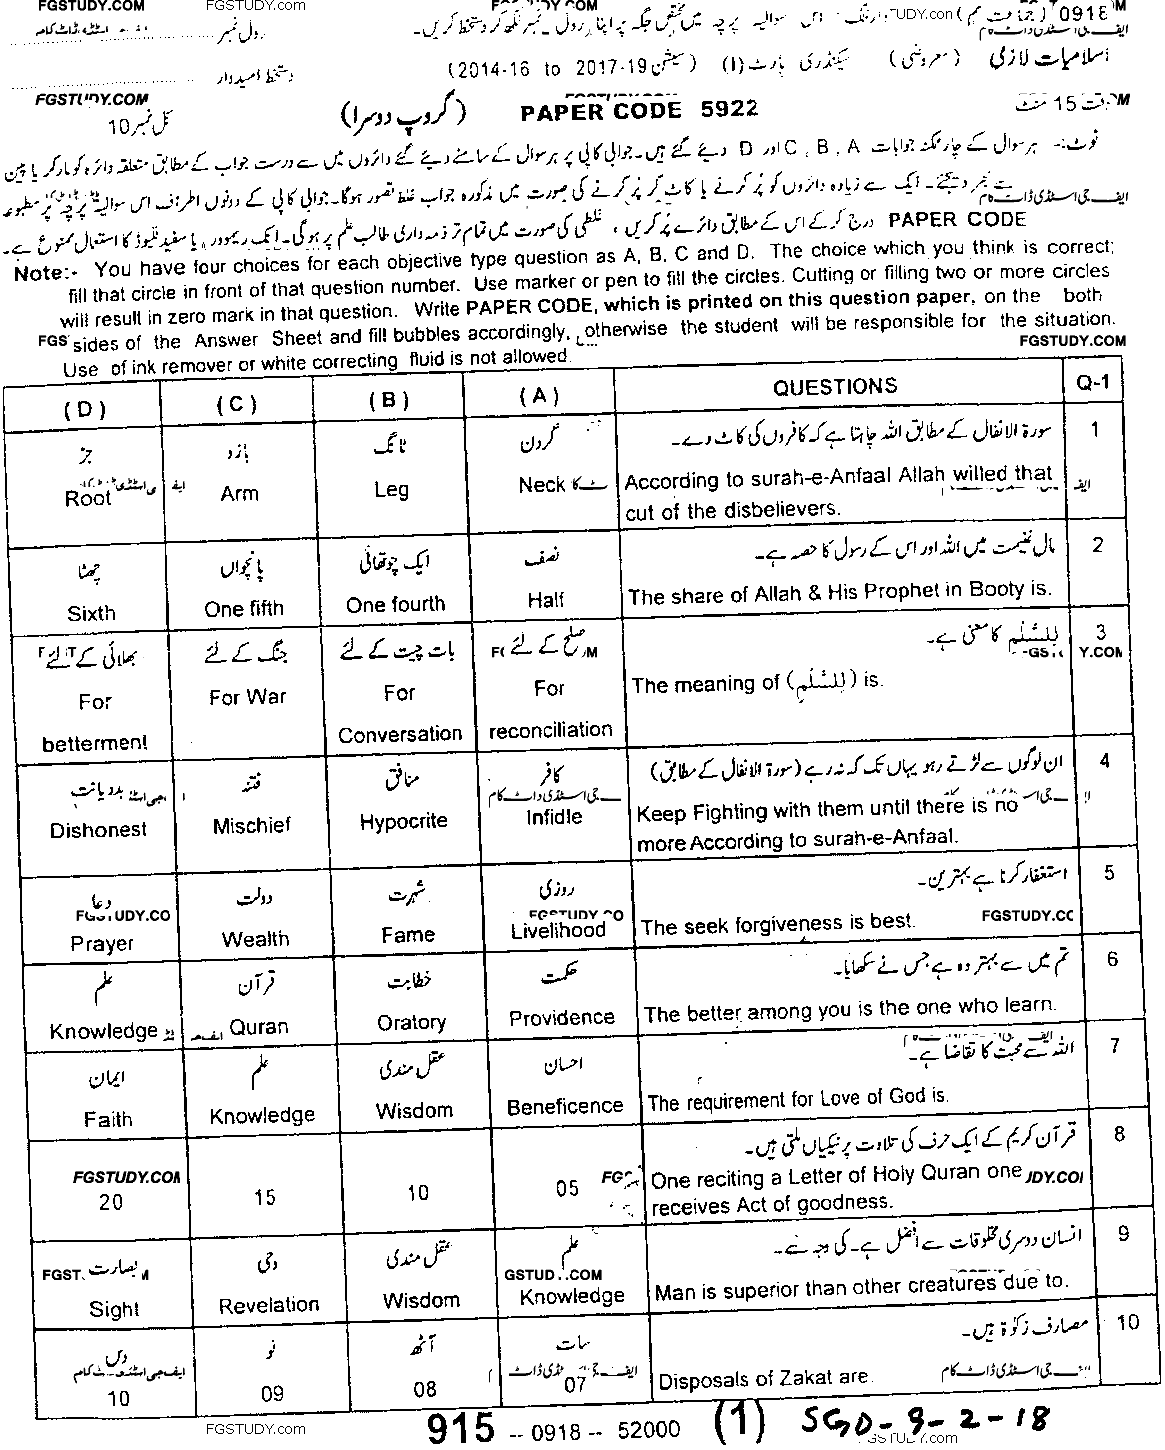 FGSTUDY.COM FGSTUDY.com FGSTUDY.COM
0918 (جماعت نہم) وارننگ:- اس سوالیہ پرچہ میں مختص جگہ پر اپنا رول نمبر لکھ کر دستخط کریں۔ رول نمبر
اسلامیات لازمی (معروضی) سیکنڈری پارٹ (I) (سیشن 2014-16 to 2017-19) دستخط امیدوار
وقت 15 منٹ PAPER CODE 5922 (گروپ دوسرا) کل نمبر 10
FGSTUDY.COM
نوٹ:- ہر سوال کے چار ممکنہ جوابات A , B , C اور D دیئے گئے ہیں۔ جوابی کاپی پر ہر سوال کے سامنے دیئے گئے دائروں میں سے درست جواب کے مطابق متعلقہ دائرہ کو مارکر یا پین
سے بھر دیجئے۔ ایک سے زیادہ دائروں کو پُر کرنے یا کاٹ کر پُر کرنے کی صورت میں مذکورہ جواب غلط تصور ہوگا۔ جوابی کاپی کے دونوں اطراف اس سوالیہ پرچہ پر مطبوعہ
PAPER CODE درج کر کے اس کے مطابق دائرے پُر کریں ، غلطی کی صورت میں تمام تر ذمہ داری طالب علم پر ہوگی۔ انک ریموور یا سفید فلیوڈ کا استعمال ممنوع ہے۔
Note:- You have four choices for each objective type question as A, B, C and D. The choice which you think is correct;
fill that circle in front of that question number. Use marker or pen to fill the circles. Cutting or filling two or more circles
will result in zero mark in that question. Write PAPER CODE, which is printed on this question paper, on the both
sides of the Answer Sheet and fill bubbles accordingly, otherwise the student will be responsible for the situation.
FGSTUDY.COM
Use of ink remover or white correcting fluid is not allowed.
(D) (C) (B) (A) QUESTIONS Q-1
جڑ بازو ٹانگ گردن سورۃ الانفال کے مطابق اللہ چاہتا ہے کہ کافروں کی کاٹ دے۔ 1
Root Arm Leg Neck According to surah-e-Anfaal Allah willed that
cut of the disbelievers.
چھٹا پانچواں ایک چوتھائی نصف مال غنیمت میں اللہ اور اس کے رسول کا حصہ ہے۔ 2
Sixth One fifth One fourth Half The share of Allah & His Prophet in Booty is.
بھلائی کے لئے جنگ کے لئے بات چیت کے لئے صلح کے لئے لِلسَّلْمِ کا معنی ہے۔ 3
For For War For For The meaning of (لِلسَّلْمِ) is.
betterment Conversation reconciliation
بددیانت فتنہ منافق کافر ان لوگوں سے لڑتے رہو یہاں تک کہ نہ رہے (سورۃ الانفال کے مطابق) 4
Dishonest Mischief Hypocrite Infidle Keep Fighting with them until there is no
more According to surah-e-Anfaal.
دعا دولت شہرت روزی استغفار کرنا ہے بہترین۔ 5
Prayer Wealth Fame Livelihood The seek forgiveness is best.
علم قرآن خطابت حکمت تم میں سے بہتر وہ ہے جس نے سکھایا۔ 6
Knowledge Quran Oratory Providence The better among you is the one who learn.
ایمان علم عقل مندی احسان اللہ سے محبت کا تقاضا ہے۔ 7
Faith Knowledge Wisdom Beneficence The requirement for Love of God is.
قرآن کریم کے ایک حرف کی تلاوت پر نیکیاں ملتی ہیں۔ 8
20 15 10 05 One reciting a Letter of Holy Quran one
receives Act of goodness.
بصارت وحی عقل مندی علم انسان دوسری مخلوقات سے افضل ہے۔ کی وجہ سے۔ 9
Sight Revelation Wisdom Knowledge Man is superior than other creatures due to.
دس نو آٹھ سات مصارف زکوٰۃ ہیں۔ 10
10 09 08 07 Disposals of Zakat are.
FGSTUDY.com 915 -- 0918 -- 52000 (1) SGD-9-2-18